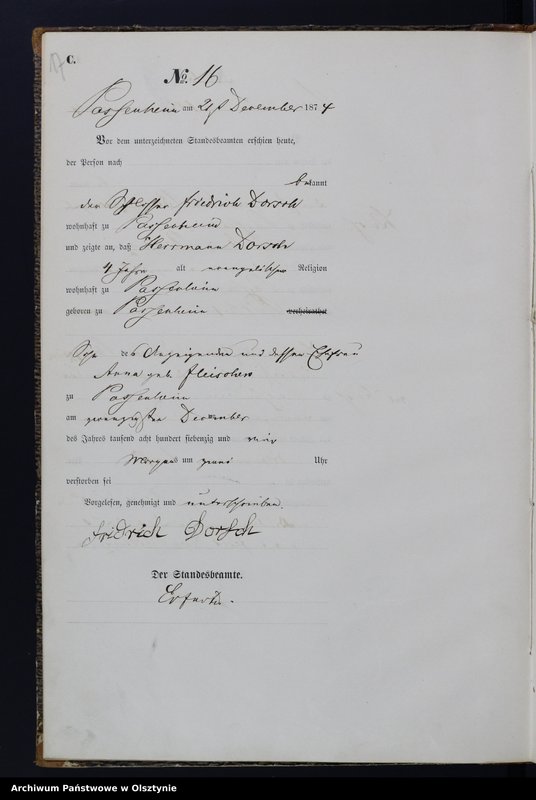 17 C.
No. 16
Passenheim am 21st December 1874
Vor dem unterzeichneten Standesbeamten erschien heute,
der Person nach
bekannt
der Schlosser Friedrich Dorsch
wohnhaft zu Passenheim
und zeigte an, daß Herrmann Dorsch
4 Jahr alt evangelischer Religion
wohnhaft zu Passenheim
geboren zu Passenheim verheirathet
Sohn des Anzeigenden und dessen Ehefrau
Anna geb. Fleischer
zu Passenheim
am zwanzigsten December
des Jahres tausend acht hundert siebenzig und vier
Morgens um zwei Uhr
verstorben sei
Vorgelesen, genehmigt und unterschrieben.
Fridrich Dorsch
Der Standesbeamte.
Archiwum Państwowe w Olsztynie